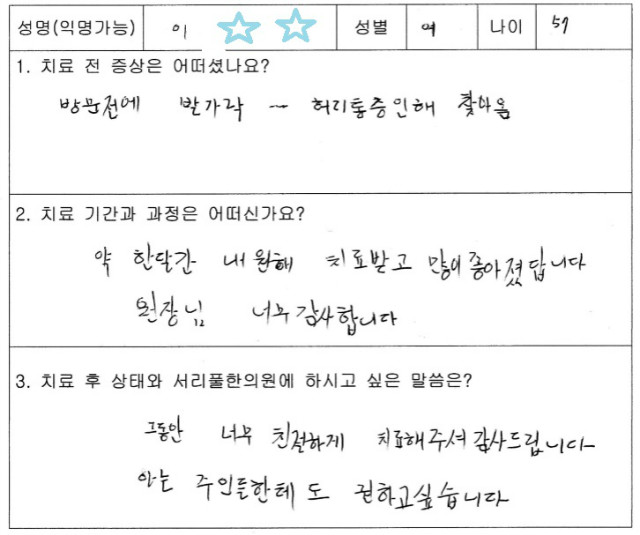 성명(익명가능) 이 성별 여 나이 57
1. 치료 전 증상은 어떠셨나요?
방문전에 발가락 - 허리통증인해 찾아옴
2. 치료 기간과 과정은 어떠신가요?
약 한달간 내원해 치료받고 많이 좋아졌답니다
원장님 너무 감사합니다
3. 치료 후 상태와 서리풀한의원에 하시고 싶은 말씀은?
그동안 너무 친절하게 치료해주셔 감사드립니다
아는 주인들한테 도 권하고싶습니다